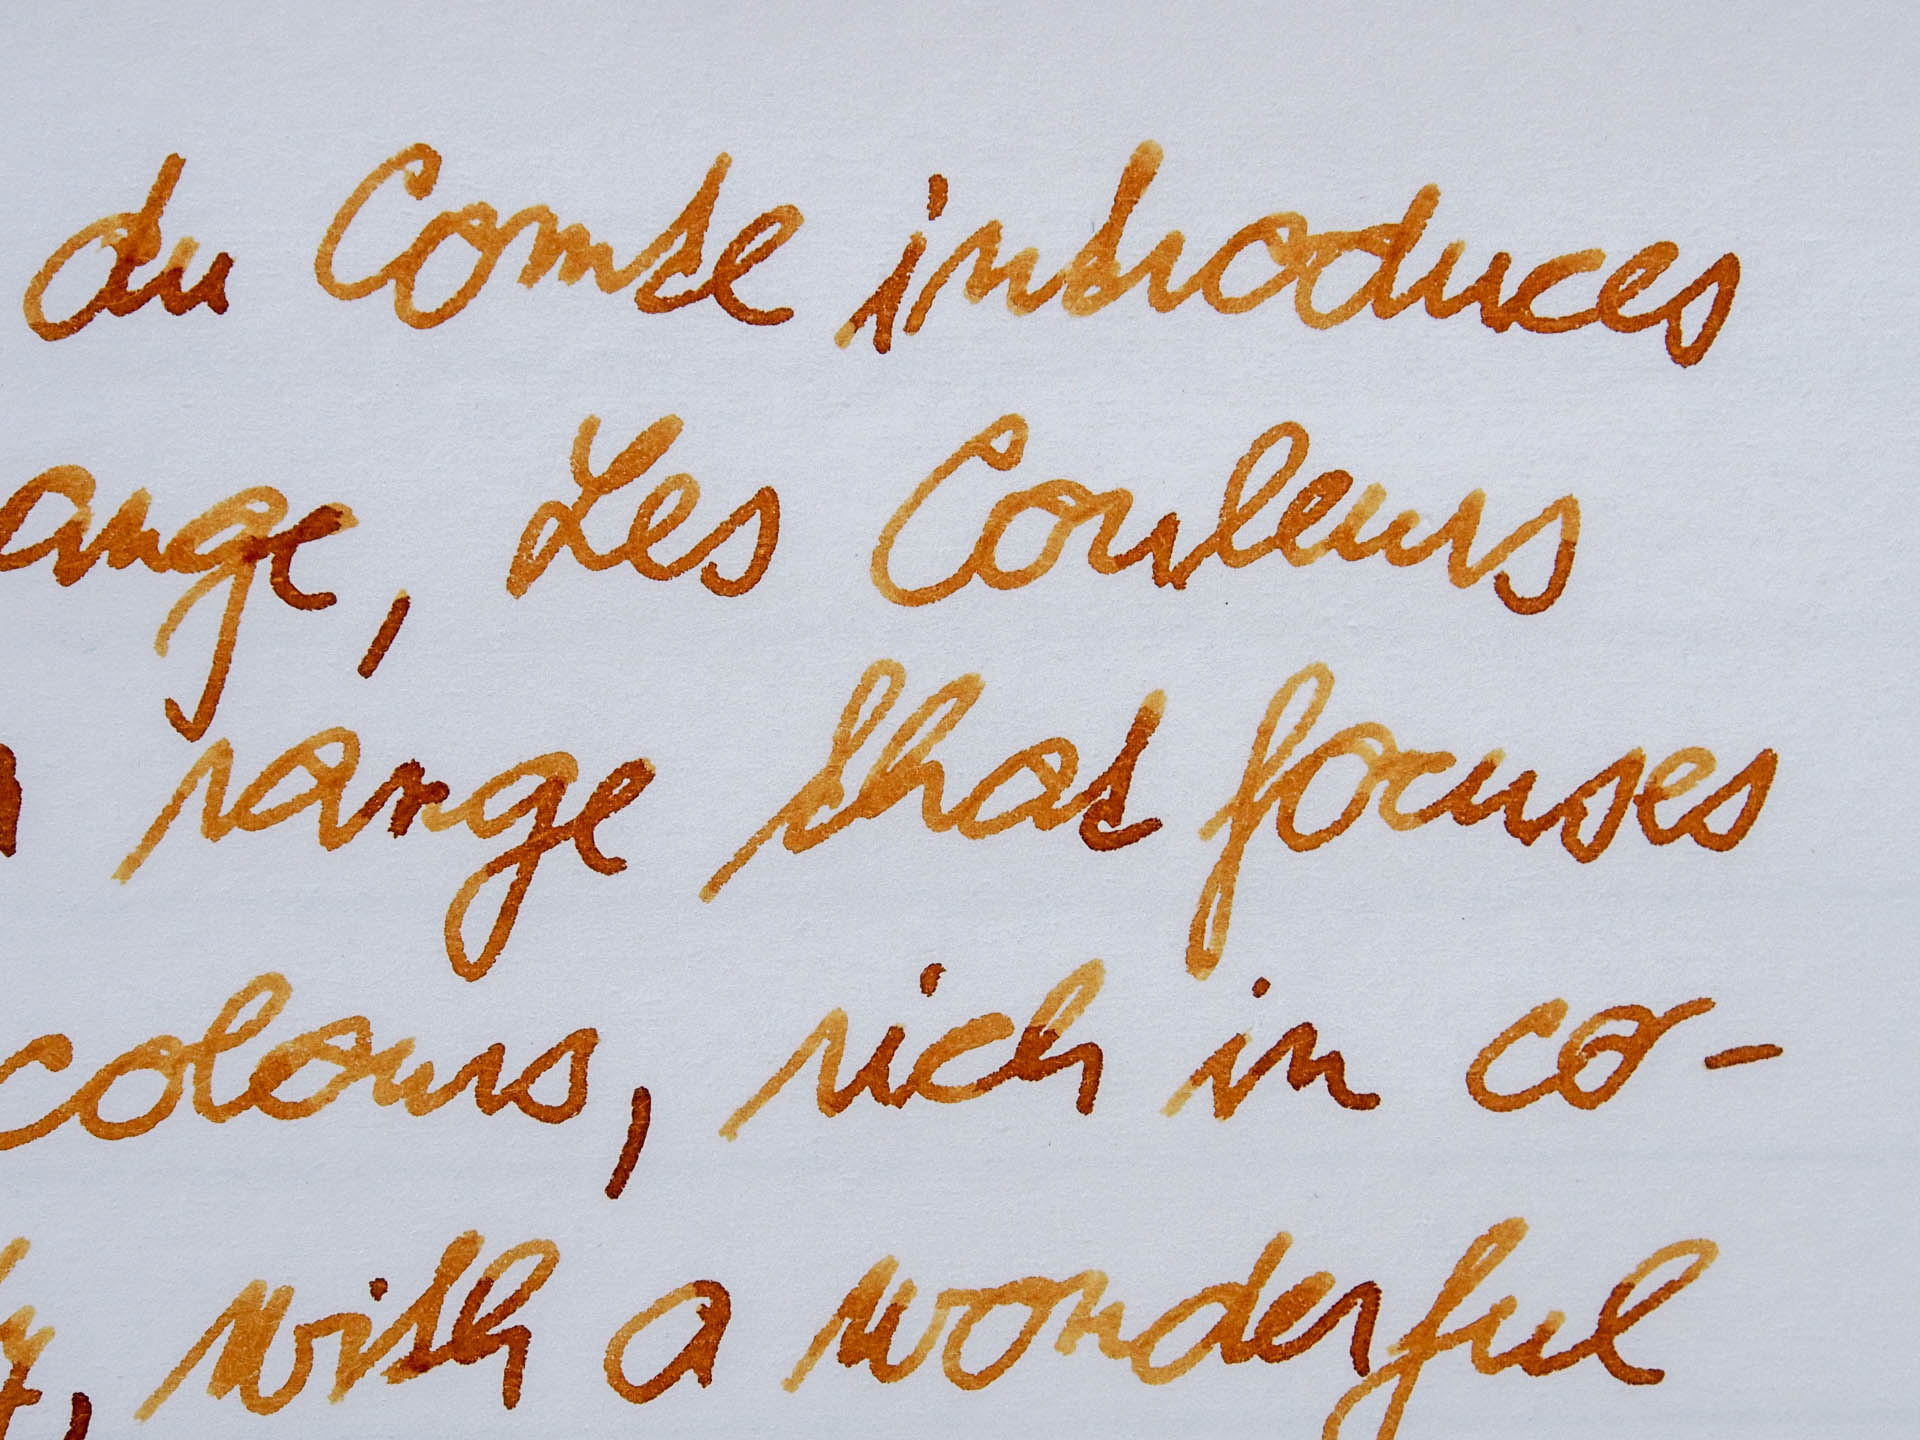 du Comte introduces
ange, Les Couleurs
range that focuses
colours, rich in co-
, with a wonderful